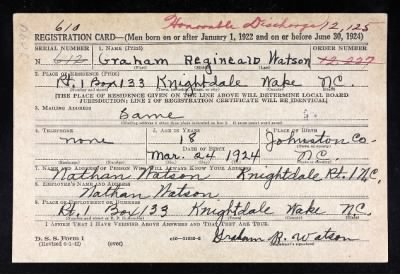 610 Honorable Discharge 12,125
REGISTRATION CARD—(Men born on or after January 1, 1922 and on or before June 30, 1924)
SERIAL NUMBER 1. NAME (Print) ORDER NUMBER
612 Graham Reginald Watson 12,227
2. PLACE OF RESIDENCE (Print)
Rt. 1 Box 133 Knightdale Wake N.C.
[THE PLACE OF RESIDENCE GIVEN ON THE LINE ABOVE WILL DETERMINE LOCAL BOARD
JURISDICTION; LINE 2 OF REGISTRATION CERTIFICATE WILL BE IDENTICAL]
3. MAILING ADDRESS
Same
4. TELEPHONE 5. AGE IN YEARS 6. PLACE OF BIRTH
none 18 Johnston Co.
DATE OF BIRTH
Mar. 24 1924 N.C.
7. NAME AND ADDRESS OF PERSON WHO WILL ALWAYS KNOW YOUR ADDRESS
Nathan Watson Knightdale Rt. 1 N.C.
8. EMPLOYER'S NAME AND ADDRESS
Nathan Watson
9. PLACE OF EMPLOYMENT OR BUSINESS
Rt. 1 Box 133 Knightdale Wake N.C.
I AFFIRM THAT I HAVE VERIFIED ABOVE ANSWERS AND THAT THEY ARE TRUE.
D. S. S. FORM 1
(over)
Graham R. Watson